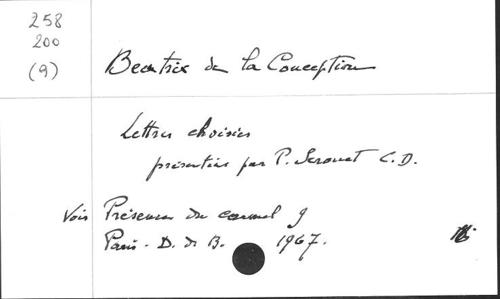 258
200
(9)
Beatrix de la Conception
Lettres choisies
présentées par P. Serouet C.D.
Voir Présence du carmel 9
Paris - D. d. B. 1967.